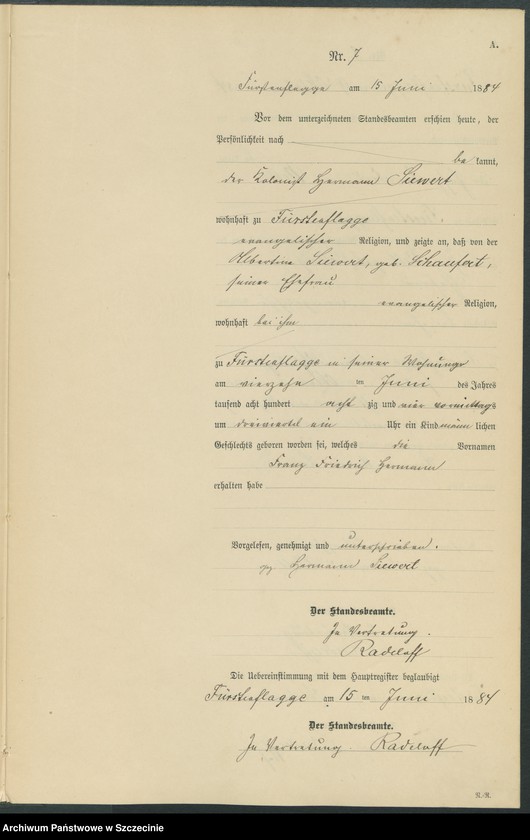 A.
Nr. 7
Fürstenflagge am 15 Juni 1884
Vor dem unterzeichneten Standesbeamten erschien heute, der
Persönlichkeit nach
be kannt,
der Kolonist Hermann Siewert
wohnhaft zu Fürstenflagge
evangelischer Religion, und zeigte an, daß von der
Albertine Siewert, geb. Schaufert,
seiner Ehefrau
evangelischer Religion,
wohnhaft bei ihm
zu Fürstenflagge in seiner Wohnung
am vierzehn ten Juni des Jahres
tausend acht hundert acht zig und vier vormittags
um dreiviertel ein Uhr ein Kind männ lichen
Geschlechts geboren worden sei, welches die Vornamen
Franz Friedrich Hermann
erhalten habe
Vorgelesen, genehmigt und unterschrieben.
gz Hermann Siewert
Der Standesbeamte.
In Vertretung.
Radeloff
Die Uebereinstimmung mit dem Hauptregister beglaubigt
Fürstenflagge am 15 ten Juni 1884
Der Standesbeamte.
In Vertretung. Radeloff
Archiwum Państwowe w Szczecinie